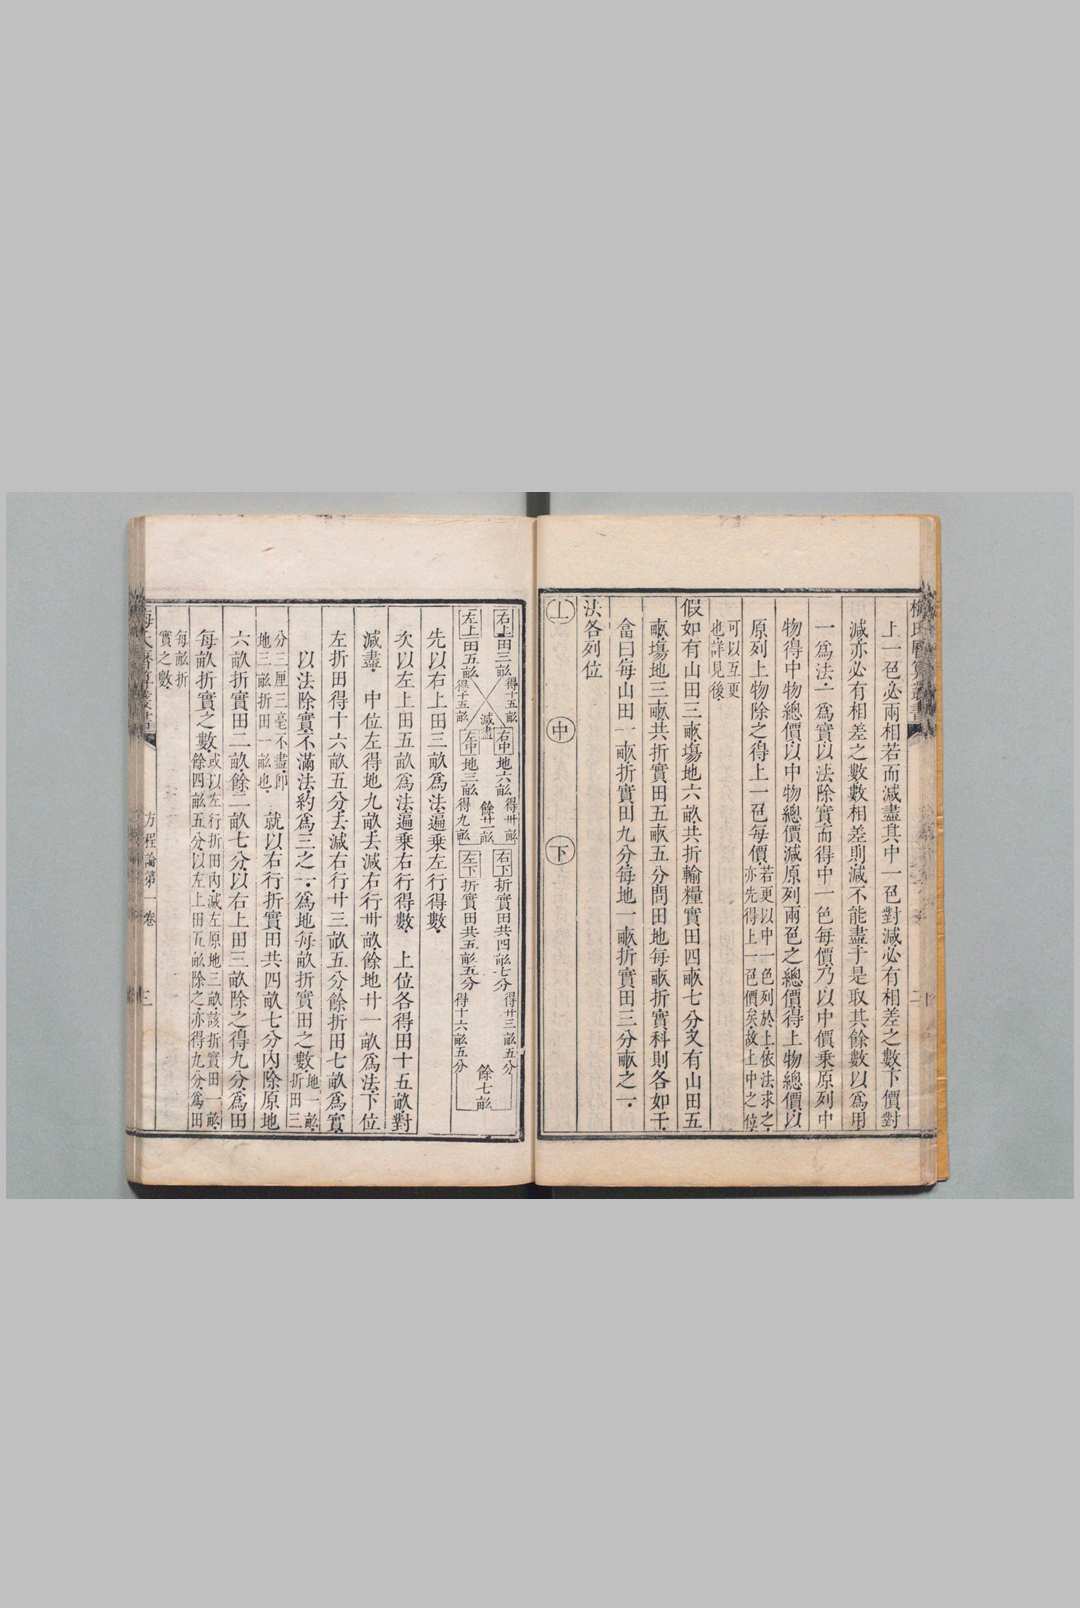 梅氏曆算叢書
二
上一色必兩相若而減盡其中一色對減必有相差之數下價對
減亦必有相差之數數相差則減不能盡于是取其餘數以爲用
一爲法一爲實以法除實而得中一色每價乃以中價乘原列中
物得中物總價以中物總價減原列兩色之總價得上物總價以
原列上物除之得上一色每價若更以中一色列於上依法求之
亦先得上一色價矣故上中之位
可以互更
也詳見後
假如有山田三畝塲地六畝共折輸糧實田四畝七分又有山田五
畝塲地三畝共折實田五畝五分問田地每畝折實科則各如干
答曰每山田一畝折實田九分每地一畝折實田三分畝之一
法各列位
上 中 下
右上田三畝 得十五畝 右中地六畝 得卅畝 右下折實田共四畝七分 得廿三畝五分
減盡 餘廿一畝 餘七畝
左上田五畝 得十五畝 左中地三畝 得九畝 左下折實田共五畝五分 得十六畝五分
先以右上田三畝爲法遍乘左行得數
次以左上田五畝爲法遍乘右行得數 上位各得田十五畝對
減盡 中位左得地九畝去減右行卅畝餘地廿一畝爲法下位
左折田得十六畝五分去減右行廿三畝五分餘折田七畝爲實
以法除實不滿法約爲三之一爲地每畝折實田之數地一畝
折田三
分三厘三毫不盡卽
地三畝折田一畝也
就以右行折實田共四畝七分內除原地
六畝折實田二畝餘二畝七分以右上田三畝除之得九分爲田
每畝折實之數或以左行折田內減左原地三畝該折實田一畝
餘四畝五分以左上田五畝除之亦得九分爲田
每畝折
實之數
梅氏曆算叢書
方程論第一卷
三